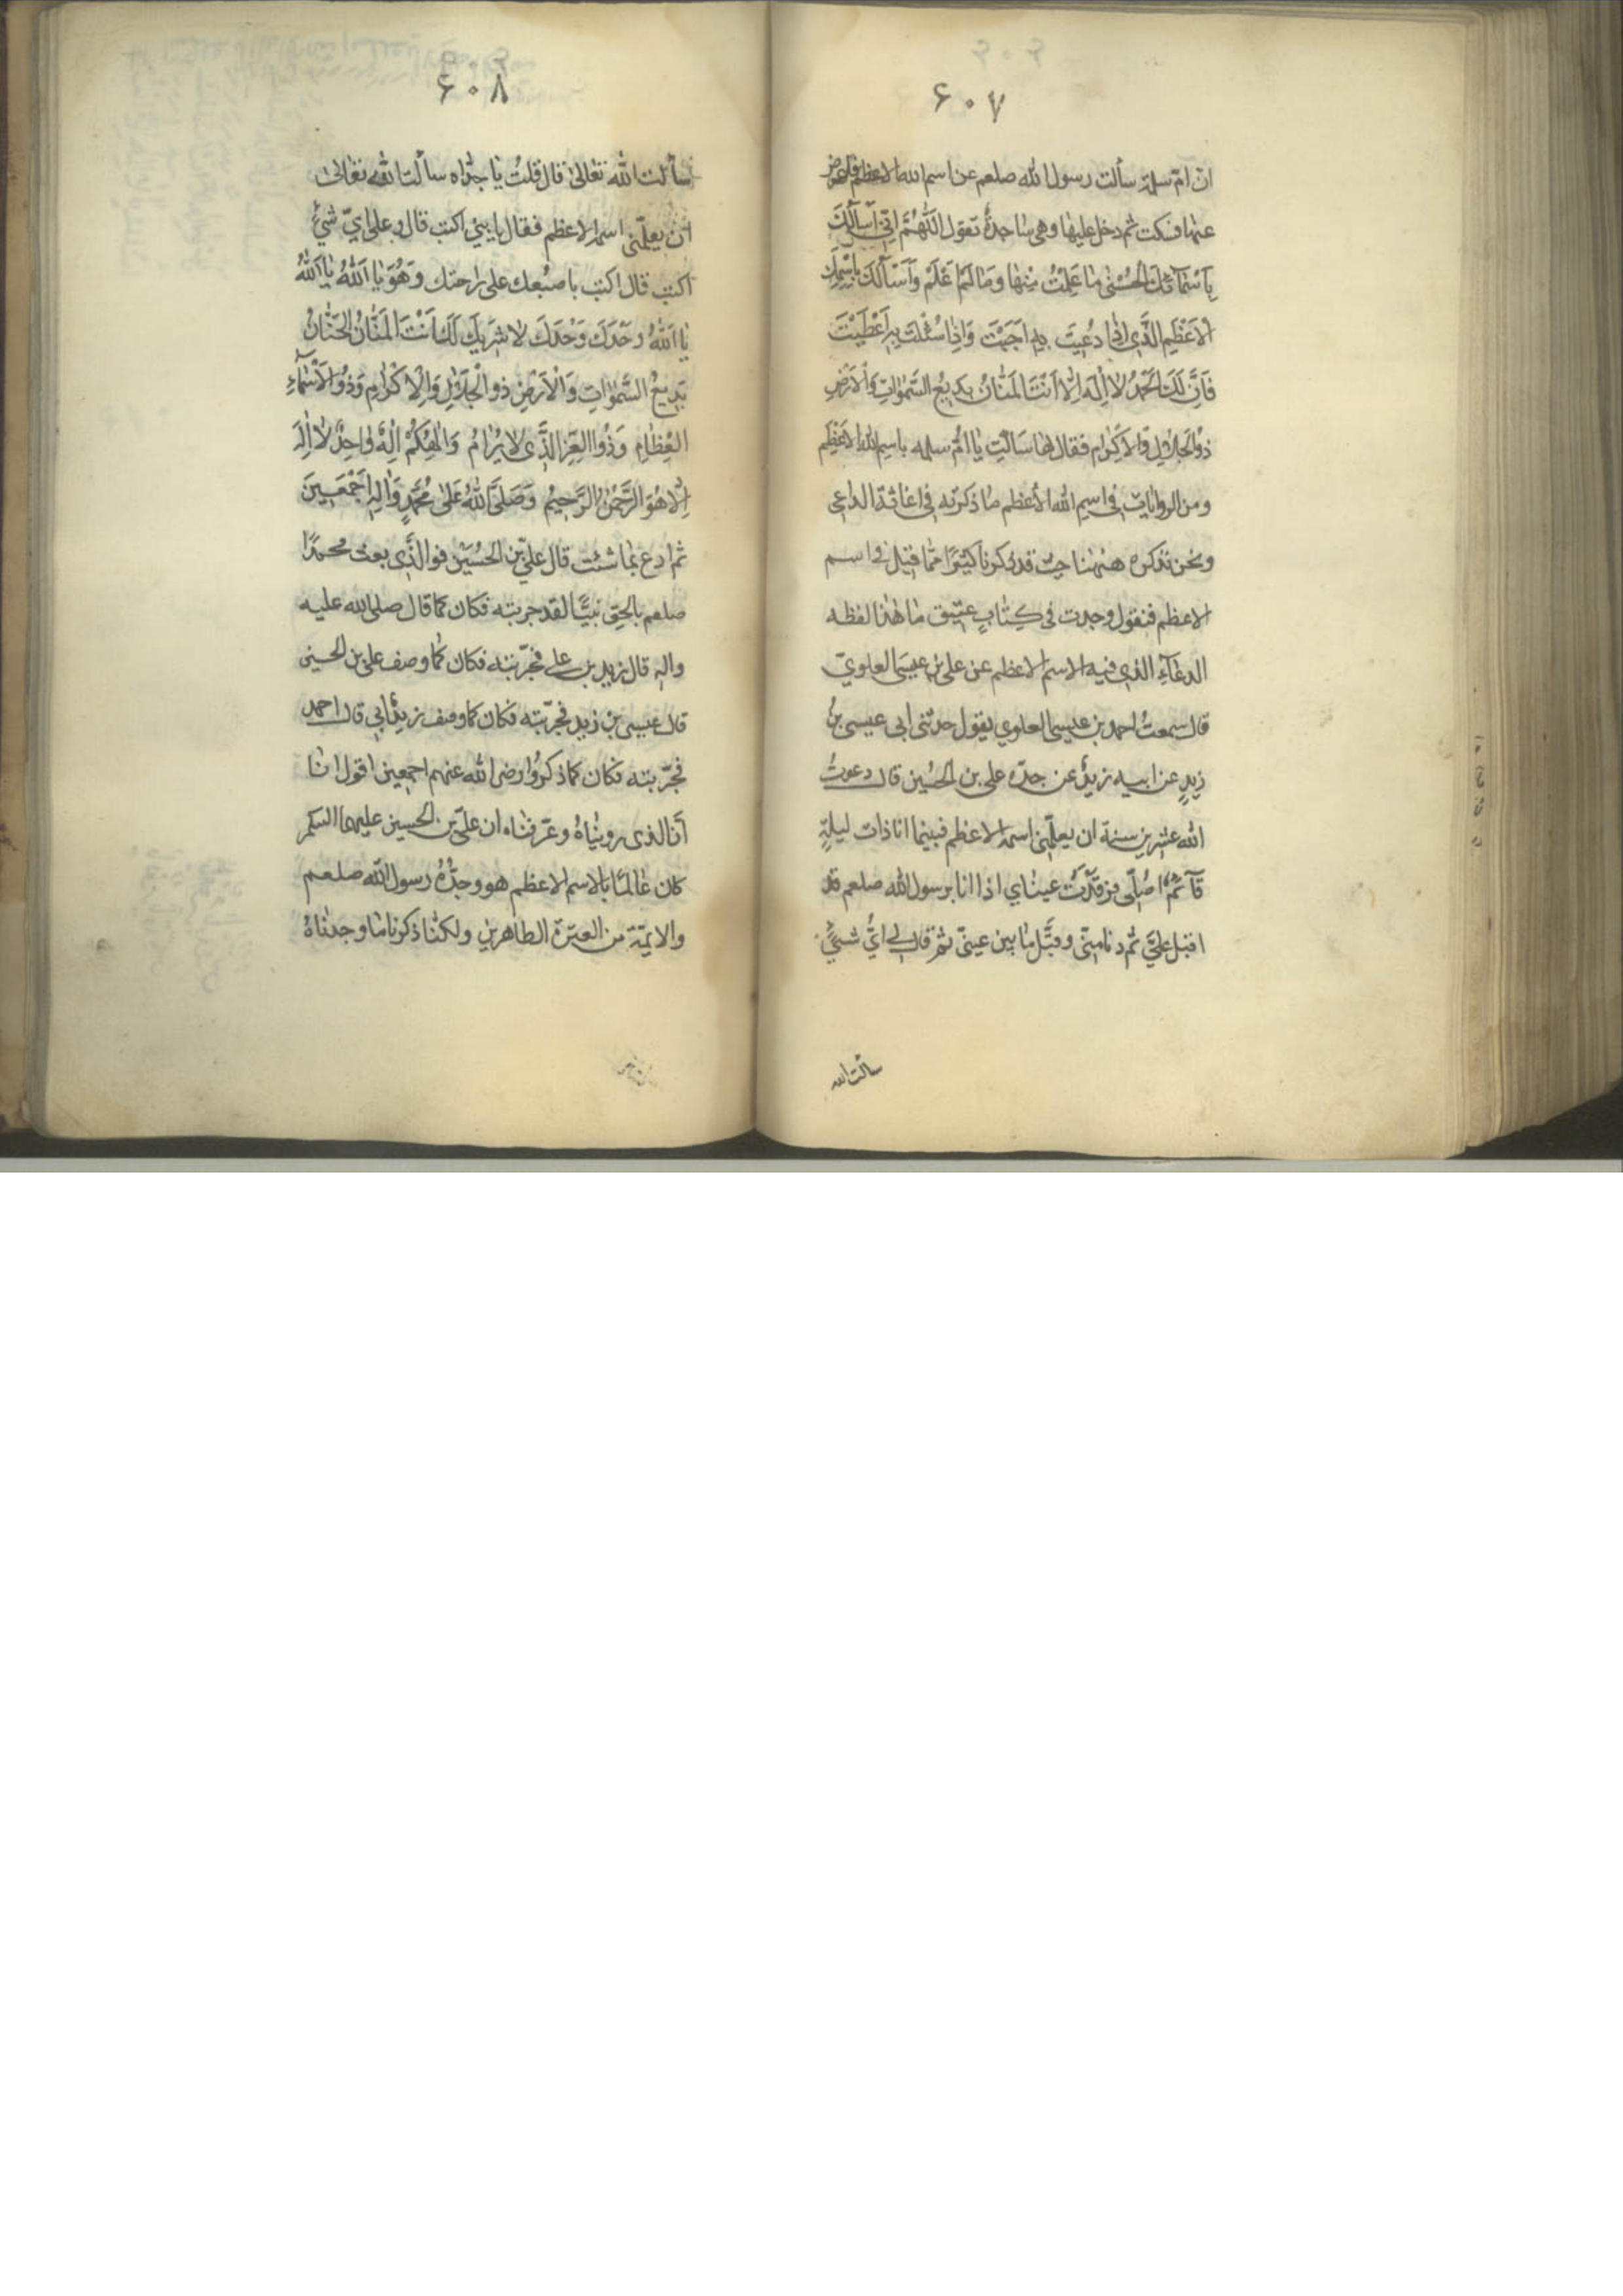 ۶۰۷
ان ام سلمة سألت رسول الله صلعم عن اسم الله الاعظم فاعرض
عنها فسكت ثم دخل عليها وهى ساجدة تقول اللَّهُمَّ اِنّى اَسْأَلُكَ
بِاَسْمَائِكَ الْحُسْنٰى مَا عَلِمْتُ مِنْهَا وَمَا لَمْ اَعْلَمْ وَاَسْأَلُكَ بِاسْمِكَ
الْاَعْظَمِ الَّذِى اِذَا دُعِيتَ بِهِ اَجَبْتَ وَاِذَا سُئِلْتَ بِهِ اَعْطَيْتَ
فَاِنَّ لَكَ الْحَمْدُ لَا اِلٰهَ اِلَّا اَنْتَ الْمَنَّانُ بَدِيعُ السَّمٰوَاتِ وَالْاَرْضِ
ذُو الْجَلَالِ وَالْاِكْرَامِ فقال لها سَاَلْتِ يٰا اُمّ سلمه باسم الله الاعظم
ومن الروايات فى اسم الله الأعظم مٰا ذكرته فى اغاثة الداعى
ونحن نذكره هٰيهنا حيث قد ذكرنا كثيرًا ممّا قيل فى اسم
الاعظم فنقول وجدت فى كِتٰابٍ عتيق مٰا هٰذا لفظه
الدعٰآءِ الذى فيه الاسم الاعظم عن على بن عيسى العلوىّ
قال سمعتُ احمد بن عيسى العلوي يقول حدثنى ابى عيسى بنُ
زيدٍ عن ابيه زيدٌ عن جدّه على بن الحسين قال دعوتُ
الله عشرين سنة ان يعلّمنى اسمه الاعظم فبينما انا ذات ليلةٍ
قآئمٌ اصُلّى فرقدَت عينٰاي اذا انا برسول الله صلعم قد
اقبل علىَّ ثم دنا منّى وقبَّل مٰا بين عينىّ ثم قال لى ايُّ شىءٍ
سألت الله
۶۰۸
سألت الله تعٰالىٰ قال قلتُ يٰا جدّاه سألت الله تعٰالىٰ
اَن يعلّمنى اسمه الاعظم فقال يا بنى اكتب قال وعلى اىّ شىءٍ
اكتب قال اكتب باصبعك على راحتك وَهُوَ يٰا اَللّٰهُ يٰا اَللّٰهُ
يٰا اَللّٰهُ وَحْدَكَ وَحْدَكَ لَا شَرِيكَ لَكَ اَنْتَ الْمَنَّانُ الْحَنَّانُ
بَدِيعُ السَّمٰوَاتِ وَالْاَرْضِ ذو الْجَلَالِ وَالْاِكْرَامِ وَذُو الْاَسْمَآءِ
العِظَامِ وَذُو الْعِزِّ الَّذِى لَا يُرَامُ وَاِلٰهُكُمْ اِلٰهٌ وَاحِدٌ لَا اِلٰهَ
اِلَّا هُوَ الرَّحْمٰنُ الرَّحِيمُ وَصَلَّى اللّٰهُ عَلٰى مُحَمَّدٍ وَاٰلِهِ اَجْمَعِينَ
ثم ادع بمٰا شئت قال علىّ بن الحُسَيْن فو الَّذِى بعث محمدًا
صلعم بالحق نبيًّا لقد جربته فكان كما قال صلى الله عليه
واله قال زيد بن على فجرّبته فكان كمٰا وصف على بن الحسين
قال عيسى بن زيد فجرّبته فكان كما وصف زيدٌ ابى قال احمد
فجرّبته فكان كما ذكروُا رضى الله عنهم اجمعين اقول انٰا
أنَا الذى رويٰناهُ وعرّفناه ان علىّ بن الحسين عليهما السلم
كان عٰالمًا بالاسم الاعظم هو وجدُّهُ رسول الله صلعم
والايمّة من العترة الطاهرين ولكنّٰا ذكرنا مٰا وجدنٰاهُ